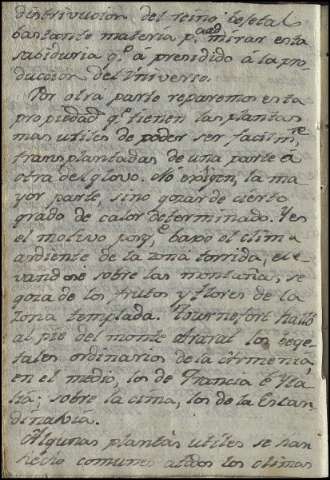 distrivucion del reino bejetal
bastante materia pa. admirar esta
sabiduria qe. á presidido á la pro-
duccion del Universo.
Por otra parte reparemos esta
propiedad qe. tienen las plantas
mas utiles de poder ser facilmte.
transplantadas de una parte á
otra del glovo. No exigen, la ma
yor parte, sino gozar de cierto
grado de calor determinado. Y es
el motivo porqe. baxo el clima
ardiente de la zona torrida, ele
vandose sobre las montañas, se
goza de los frutos y flores de la
zona templada. Tournefort halló
al pie del monte Ararat los vege
tales ordinarios de la Armenia,
en el medio, los de Francia é Ita
lia; sobre la cima, los de la Escan
dinavia.
Algunas plantas utiles se han
hecho comunes a todos los climas